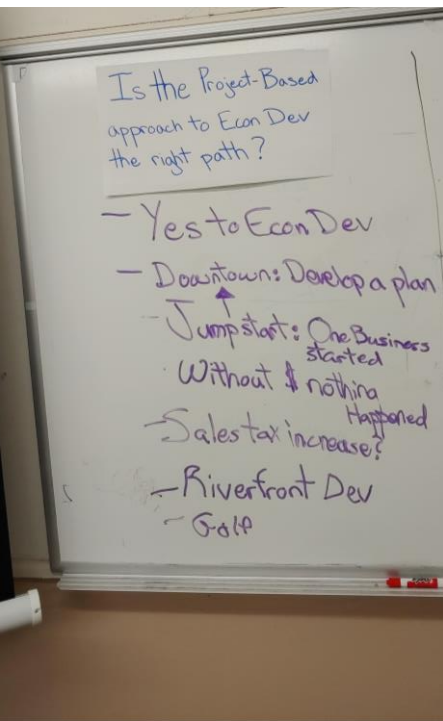 Is the Project-Based
approach to Econ Dev
the right path?
- Yes to Econ Dev
- Downtown: Develop a plan
- Jumpstart: One Business
started
· Without $ nothing
Happened
- Sales tax increase?
- Riverfront Dev
- Golf